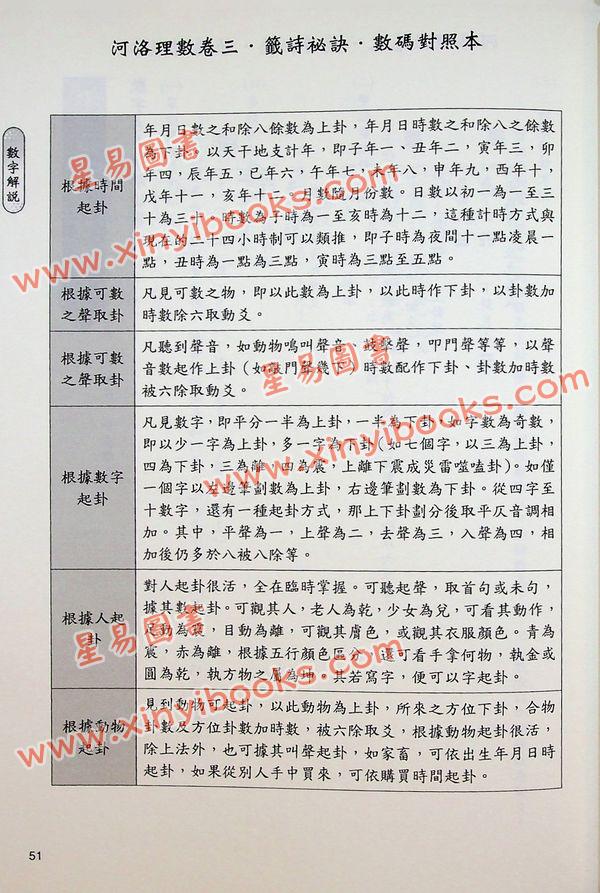 河洛理數卷三・籤詩祕訣・數碼對照本
數字解說
根據時間
起卦
年月日數之和除八餘數為上卦，年月日時數之和除八之餘數
為下卦。以天干地支計年，即子年一、丑年二，寅年三，卯
年四，辰年五，巳年六，午年七，未年八，申年九，酉年十，
戌年十一，亥年十二。月數隨月份數。日數以初一為一至三
十為三十。時數為子時為一至亥時為十二，這種計時方式與
現在的二十四小時制可以類推，即子時為夜間十一點凌晨一
點，丑時為一點為三點，寅時為三點至五點。
根據可數
之聲取卦
凡見可數之物，即以此數為上卦，以此時作下卦，以卦數加
時數除六取動爻。
根據可數
之聲取卦
凡聽到聲音，如動物鳴叫聲音、鼓擊聲，叩門聲等等，以聲
音數起作上卦（如敲門聲幾下）時數配作下卦、卦數加時數
被六除取動爻。
根據數字
起卦
凡見數字，即平分一半為上卦，一半為下卦，如字數為奇數，
即以少一字為上卦，多一字為下卦（如七個字，以三為上卦，
四為下卦，三為離，四為震，上離下震成災雷噬嗑卦）。如僅
一個字以左邊筆劃數為上卦，右邊筆劃數為下卦。從四字至
十數字，還有一種起卦方式，那上下卦劃分後取平仄音調相
加。其中，平聲為一，上聲為二，去聲為三，入聲為四，相
加後仍多於八被八除等。
根據人起
卦
對人起卦很活，全在臨時掌握。可聽起聲，取首句或未句，
據其數起卦。可觀其人，老人為乾，少女為兌，可看其動作，
足動為震，目動為離，可觀其膚色，或觀其衣服顏色。青為
震，赤為離，根據五行顏色區分，還可看手拿何物，執金或
圓為乾，執方物之屬為坤。其若寫字，便可以字起卦。
根據動物
起卦
見到動物可起卦，以此動物為上卦，所來之方位下卦，合物
卦數及方位卦數加時數，被六除取爻，根據動物起卦很活，
除上法外，也可據其叫聲起卦，如家畜，可依出生年月日時
起卦，如果從別人手中買來，可依購買時間起卦。
51
星易圖書
www.xinyibooks.com
星易圖書
www.xinyibooks.com
星易圖書
www.xinyibooks.com